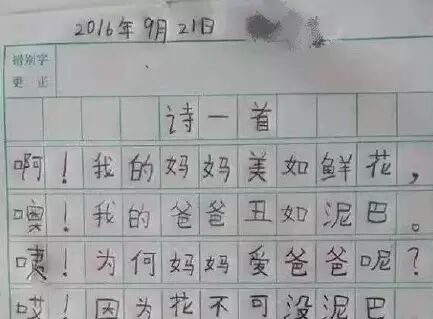 2016年9月21日
错别字
更正
诗一首
啊！我的妈妈美如鲜花，
噢！我的爸爸丑如泥巴。
咦！为何妈妈爱爸爸呢？
哎！因为花不可没泥巴